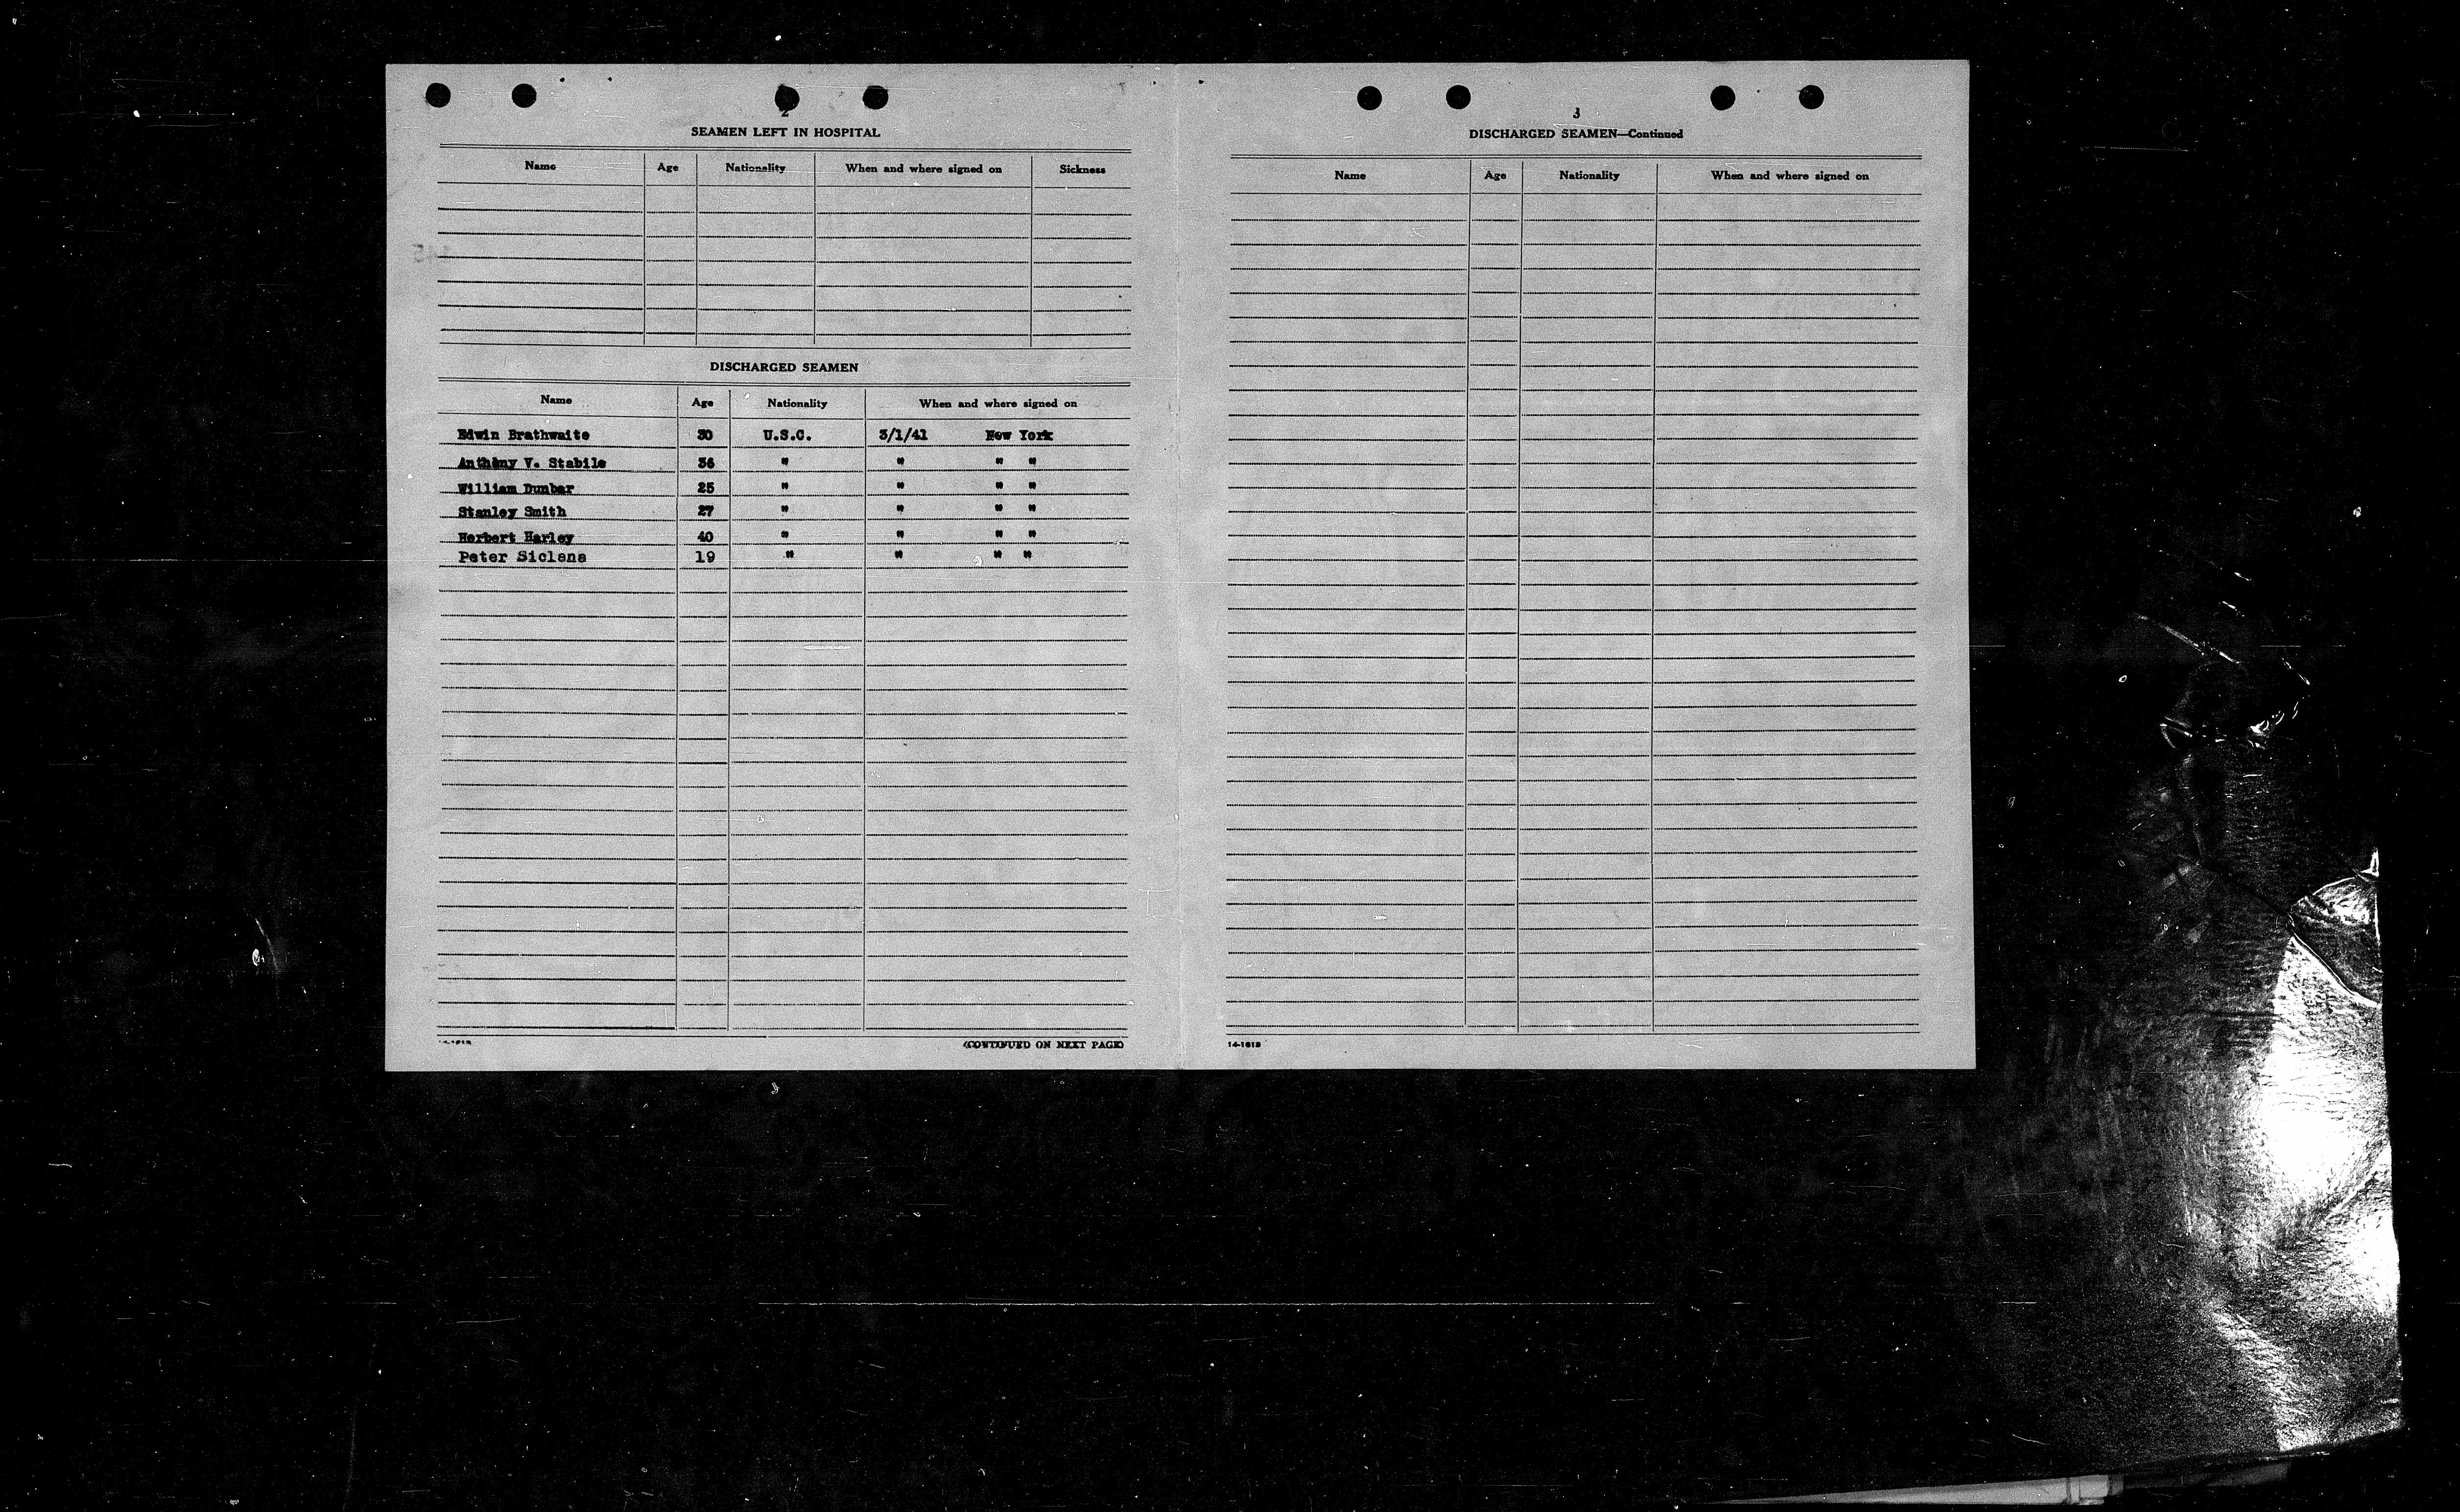 2
SEAMEN LEFT IN HOSPITAL
Name Age Nationality When and where signed on Sickness
DISCHARGED SEAMEN
Name Age Nationality When and where signed on
Edwin Brathwaite 30 U.S.C. 3/1/41 New York
Anthony V. Stabile 36 " " " "
William Dunbar 25 " " " "
Stanley Smith 27 " " " "
Herbert Harley 40 " " " "
Peter Siclena 19 " " " "
(CONTINUED ON NEXT PAGE)
3
DISCHARGED SEAMEN—Continued
Name Age Nationality When and where signed on
14-1613